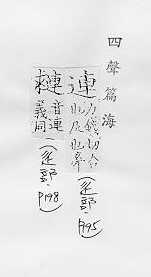 四聲篇海
連 力錢切合也及也牽
(辵部. P195)
䢬 音連義同 (辵部. P198)